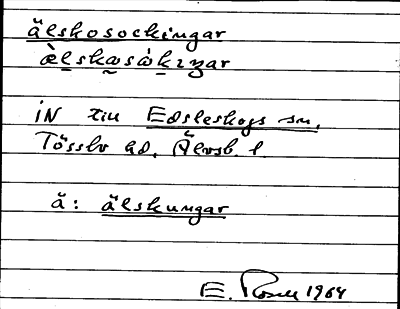 älskosockingar
èlskωsὼkıŋar
IN till Edsleskogs sn,
Tössbo hd, Älvsb. l.
ä: älskungar
E. Rosell 1964